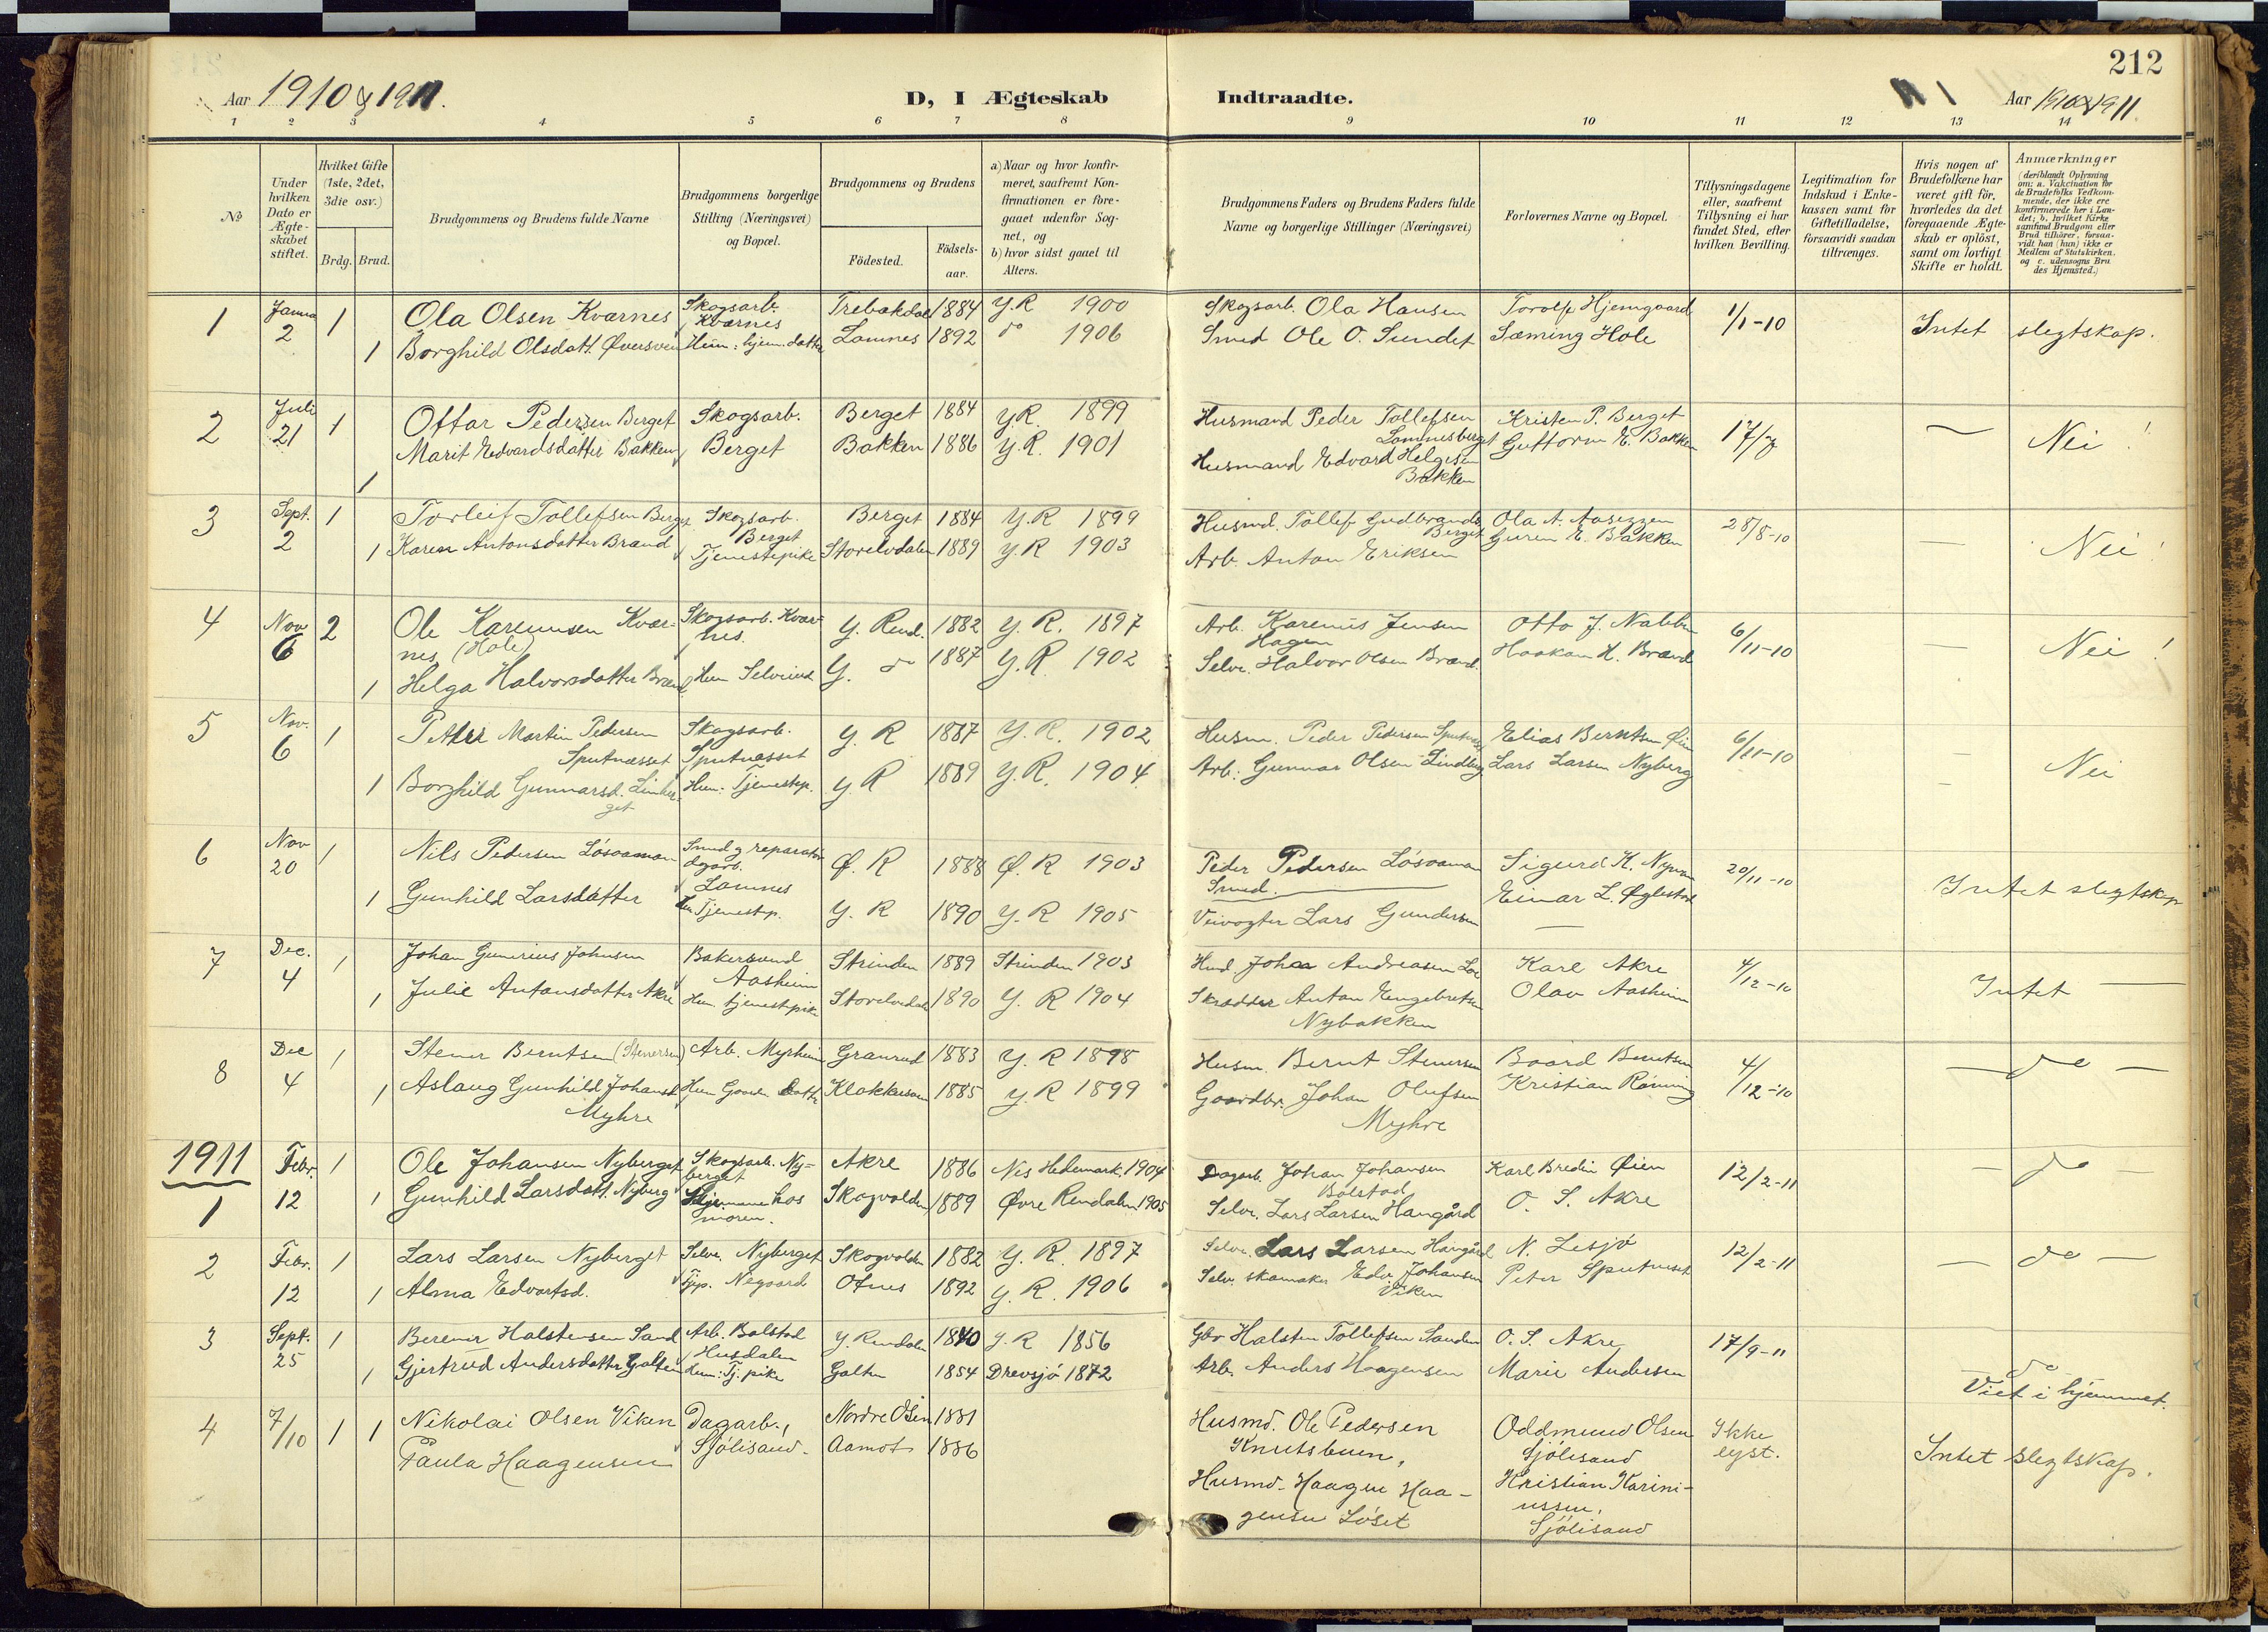 212
Aar 1910 & 1911.
D, I Ægteskab Indtraadte.
Aar 1910 & 1911.
1 2 3 4 5 6 7 8 9 10 11 12 13 14
№
Under hvilken Dato er Ægte-skabet stiftet.
Hvilket Gifte (1ste, 2det, 3die osv.)
Brdg. Brud.
Brudgommens og Brudens fulde Navne
Brudgommens borgerlige Stilling (Næringsvei) og Bopæl.
Brudgommens og Brudens
Födested.
Födsels-aar.
a) Naar og hvor konfir-meret, saafremt Kon-firmationen er fore-gaaet udenfor Sog-net, og
b) hvor sidst gaaet til Alters.
Brudgommens Faders og Brudens Faders fulde
Navne og borgerlige Stillinger (Næringsvei)
Forlovernes Navne og Bopæl.
Tillysningsdagene eller, saafremt Tillysning ei har fundet Sted, efter hvilken Bevilling.
Legitimation for Indskud i Enke-kassen samt for Giftetilladelse, forsaavidt saadan tiltrænges.
Hvis nogen af Brudefolkene har været gift för, hvorledes da det foregaaende Ægte-skab er oplöst, samt om lovligt Skifte er holdt.
Anmærkninger (deriblandt Oplysning om: a. Vakcination for de Brudefolks Vedkom-mende, der ikke ere konfirmerede her i Lan-det; b. hvilket Kirke-samfund Brudgom eller Brud tilhörer, forsaa-vidt han (hun) ikke er Medlem af Statskirken, og c. udensogns Bru-des Hjemsted.)
1 Janua 2 1 Ola Olsen Kværnes Skogsarb. Kværnes Trebakdal 1884 Y.R 1900 Skogsarb. Ola Hansen Torolf Hjemgaard 1/1-10 Intet slegtskap.
1 Borghild Olsdatt. Øversven Hun: hjem. datter Lomnes 1892 do 1906 Smed Ole O. Sundet Sæming Hole
2 Juli 21 1 Ottar Pedersen Berget Skogsarb. Berget 1884 Y.R. 1899 Husmand Peder Tollefsen Lomnesberget Kristen P. Berget 17/7 — Nei!
1 Marit Edvardsdatter Bakken Berget Bakken 1886 Y.R. 1901 Husmand Edvard Helgesen Bakken Guttorm E. Bakken
3 Sept. 2 1 Torleif Tollefsen Berget Skogsarb. Berget Berget 1884 Y.R 1899 Husmd. Tollef Gudbrands Berget Ola A. Aaseggen 28/8-10 — Nei!
1 Karen Antonsdatter Brænd Tjenestepike Storelvdalen 1889 Y.R 1903 Arb. Anton Eriksen Guren E. Bakken
4 Nov 6 2 Ole Kareniusen Kvær-nes (Hole) Skogsarb. Kvær-nes. Y. Rend. 1882 Y.R. 1897 Arb. Karenius Jensen Hagen Otto J. Nabben 6/11-10 — Nei!
1 Helga Halvorsdatter Brænd Hun Selveier Y. do 1887 Y.R. 1902 Selv. Halvor Olsen Brænd Haakon H. Brænd
5 Nov. 6 1 Petter Martin Pedersen Sputnæsset Skogsarb. Sputnæsset Y. R 1887 Y.R. 1902 Husm. Peder Pedersen Elias Berntsen Øien 6/11-10 — Nei
1 Borghild Gunnarsd. Linber-get Hun: Tjenestep. Y. R 1889 Y.R. 1904 Arb: Gunnar Olsen Lindberg Lars Larsen Nyberg
6 Nov 20 1 Nils Pedersen Løsoaman Smed g reparatør Lomnes Ø. R 1888 Ø. R 1903 Peder Pedersen Løsoaman Smed. Sigurd K. 20/11-10 Intet slegtskap
1 Gunhild Larsdatter Hun Tjenestp. Y. R 1890 Y. R 1905 Veivogter Lars Gundersen Einar L. Øglestad
7 Dec. 4 1 Johan Gunerius Johnsen Bakersvend Aasheim Strinden 1889 Strinden 1903 Johan Andreasen 4/12-10 Karl Akre Intet —
1 Julie Antonsdatter Akre Hun tjenestepike Storelvdal 1890 Y. R 1904 Skrædder Anton Engebretsen Nybakken Olav Aasheim
8 Dec 4 1 Stener Berntsen (Stenersen) Arb. Myrheim Granrud 1883 Y. R 1898 Husm. Bernt Stenersen Baard Berntsen 4/12-10 — do —
1 Aslaug Gunhild Johansd. Myhre Hun Gaardb. datter Klokkersven 1885 Y R 1899 Gaardbr. Johan Olufsen Myhre Kristian Rønning
1911
1 Febr. 12 1 Ole Johansen Nyberget Skogsarb. Ny-berget Akre 1886 Nes Hedemark. 1904 Dagarb. Johan Johansen Bolstad Karl Bredin Øien 12/2-11 — do —
1 Gunhild Larsdatt. Nyberg hos moren. Skogvolden 1889 Øvre Rendalen 1905 Selv. Lars Larsen Hangård O. S. Akre
2 Febr. 12 1 Lars Larsen Nyberget Selve. Nyberget Skogvolden 1882 Y. R. 1897 Selv. Lars Larsen Hangård N. Lesjø 12/2-11 — do —
1 Alma Edvartsd. Tjp. Negaard Otnes 1892 Y. R. 1906 Selv. skomaker Edv. Johansen Viken Peter Sputneset
3 Sept. 25 1 Berener Halstensen Sand Arb. Bolstad Husdalen Y. Rendalen 1840 Y. R 1856 Gbr Halsten Tollefsen Sanden O. S. Akre 17/9-11 do
1 Gjertrud Andersdatter Galten Hun: Tj. pike Galten 1854 Drevsjø 1872 Arb. Anders Haagensen Marie Andersen Viet i hjemmet.
4 7/10 1 1 Nikolai Olsen Viken Dagarb., Sjølisand. Nordre Osen 1881 Husmd. Ole Pedersen Knutsbuen, Oddmund Olsen Sjølisand Ikke lyst. Intet slegtskap.
Paula Haagensen Aamot 1886 Husmd. Haagen Haa-gensen Løset Kristian Karini-ussen, Sjølisand